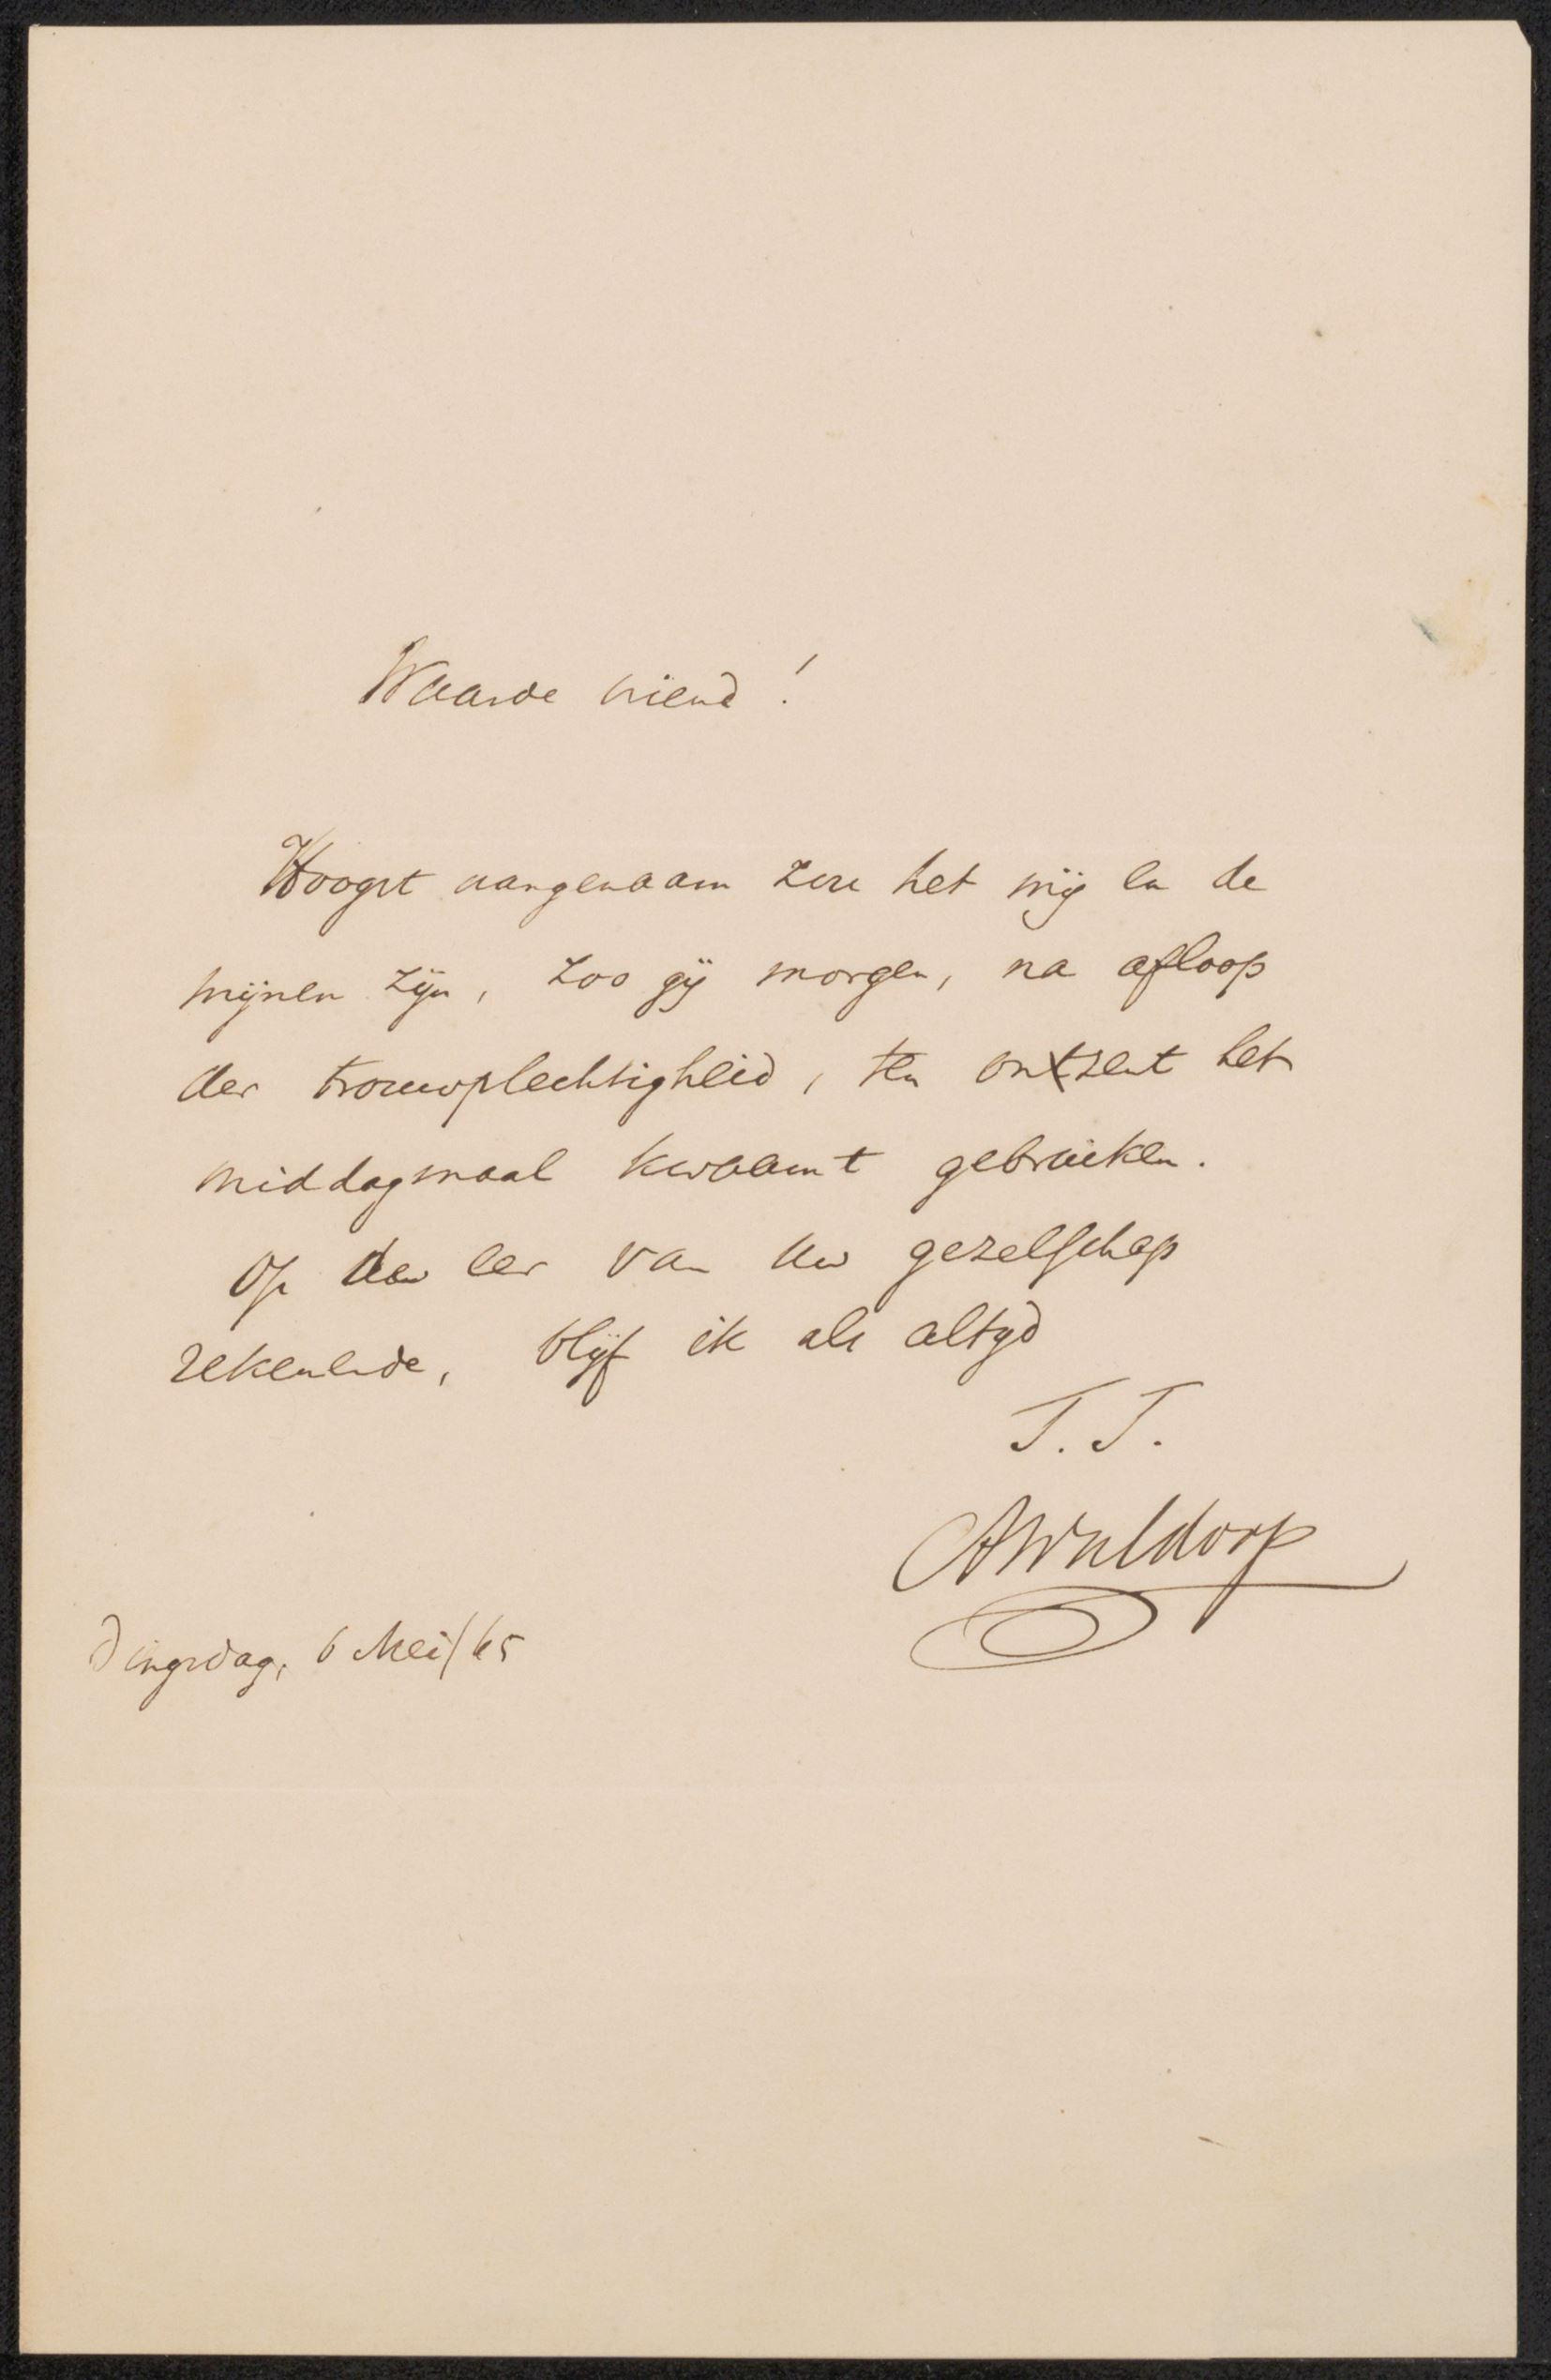 Waarde vriend!
Hoogst aangenaam zou het mij en de
mijnen zijn, zoo gij morgen, na afloop
der trouwplechtigheid, ten onzent het
middagmaal kwaamt gebruiken.
Op de eer van uw gezelschap
rekenende, blijf ik als altijd
T.T.
AWaldorp
Dingsdag, 6 Mei/65